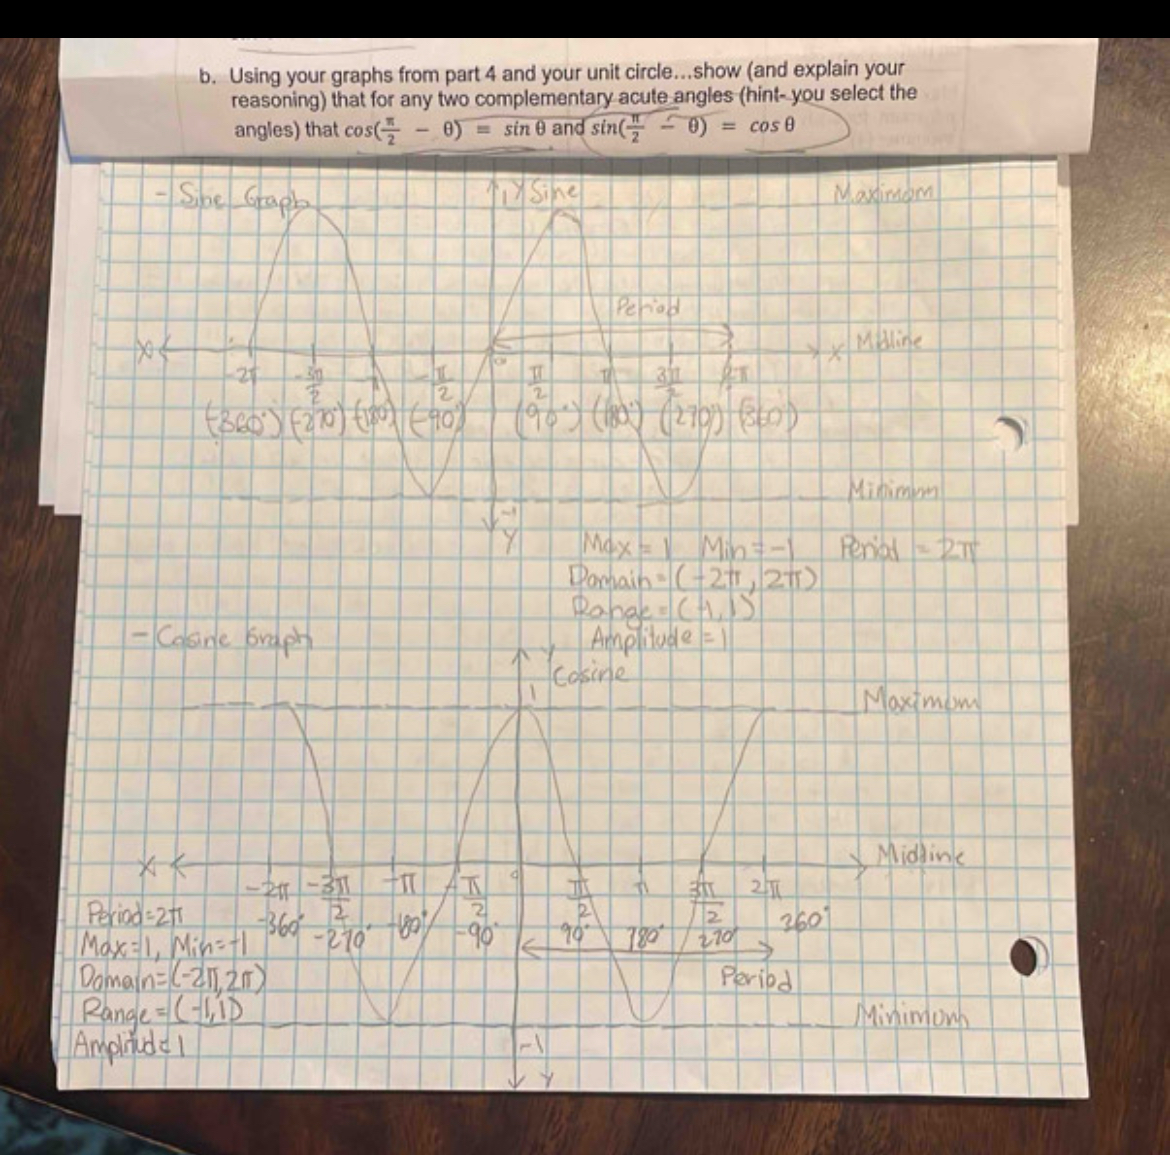 b. Using your graphs from part 4 and your unit circle...show (and explain your
reasoning) that for any two complementary acute angles (hint- you select the
angles) that cos(π/2 − θ) = sin θ and sin(π/2 − θ) = cos θ
- Sine Graph
1 Y Sine
Maximum
Period
X
X Midline
0
-2π -3π/2 -π/2 π/2 π 3π/2 2π
(-360°) (-270°) (-180°) (-90°) (90°) (180°) (270°) (360°)
Minimum
-1
Y
Max = 1 Min = -1 Period = 2π
Domain = (-2π, 2π)
Range = (-1, 1)
Amplitude = 1
- Cosine Graph
Y
Cosine
1
Maximum
X
Midline
0
-2π -3π/2 -π -π/2 π/2 π 3π/2 2π
-360° -270° -180° -90° 90° 180° 270° 360°
Period
Period=2π
Max=1, Min=-1
Domain=(-2π,2π)
Range=(-1,1)
Amplitud=1
Minimum
-1
Y